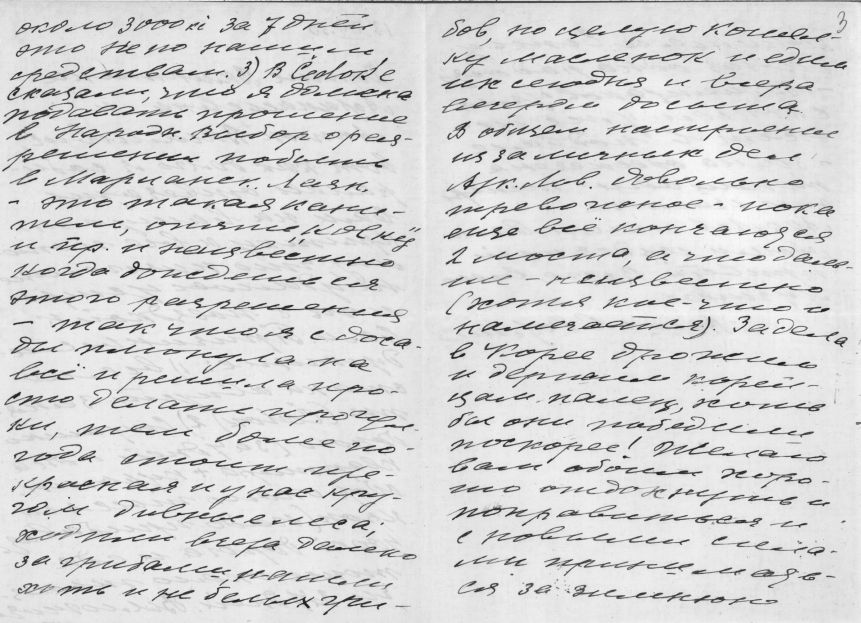 около 3000 kč за 7 дней
это не по нашим
средствам. 3) В Čedok'е
сказали, что я должна
подавать прошение
в Народн. Выбор о раз-
решении побыти
в Марианск. Лазн.
- это такая кани-
тель, опять
и пр. и неизвестно
когда дождешься
этого разрешения
- так что я с доса-
ды плюнула на
всё и решила про-
сто делать прогул-
ки, тем более по-
года стоит пре-
красная и у нас кру-
гом дивные леса;
ходили вчера далеко
за грибами, нашли
хоть и не белых гри-
3
бов, но целую кошел-
ку масленок и едим
их сегодня и вчера
вечером досыта.
В общем настроение
из за личных дел
Арк. Лов. довольно
тревожное - пока
еще всё кончаются
2 моста а что даль-
ше - неизвестно
(хотя кое-что и
намечается). За дела
в Корее дрожим
и держим корей-
цам палец, хоть
бы они победили
поскорее! Желаю
вам обоим хоро-
шо отдохнуть и
поправиться и
с новыми сила-
ми приниматься
за зимнюю